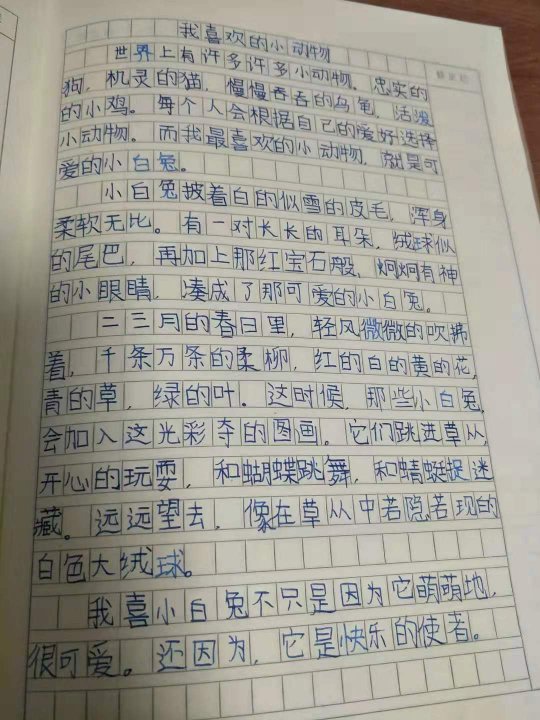 我喜欢的小动物
世界上有许多许多小动物。忠实的
狗，机灵的猫，慢慢吞吞的乌龟，活泼
的小鸡。每个人会根据自己的爱好选择
小动物。而我最喜欢的小动物，就是可
爱的小白兔。
小白兔披着白的似雪的皮毛，浑身
柔软无比。有一对长长的耳朵，绒球似
的尾巴，再加上那红宝石般，炯炯有神
的小眼睛，凑成了那可爱的小白兔。
二三月的春日里，轻风微微的吹拂
着，千条万条的柔柳，红的白的黄的花，
青的草，绿的叶。这时候，那些小白兔，
会加入这光彩夺的图画。它们跳进草从，
开心的玩耍，和蝴蝶跳舞，和蜻蜓捉迷
藏。远远望去，像在草从中若隐若现的
白色大绒球。
我喜小白兔不只是因为它萌萌地，
很可爱。还因为，它是快乐的使者。